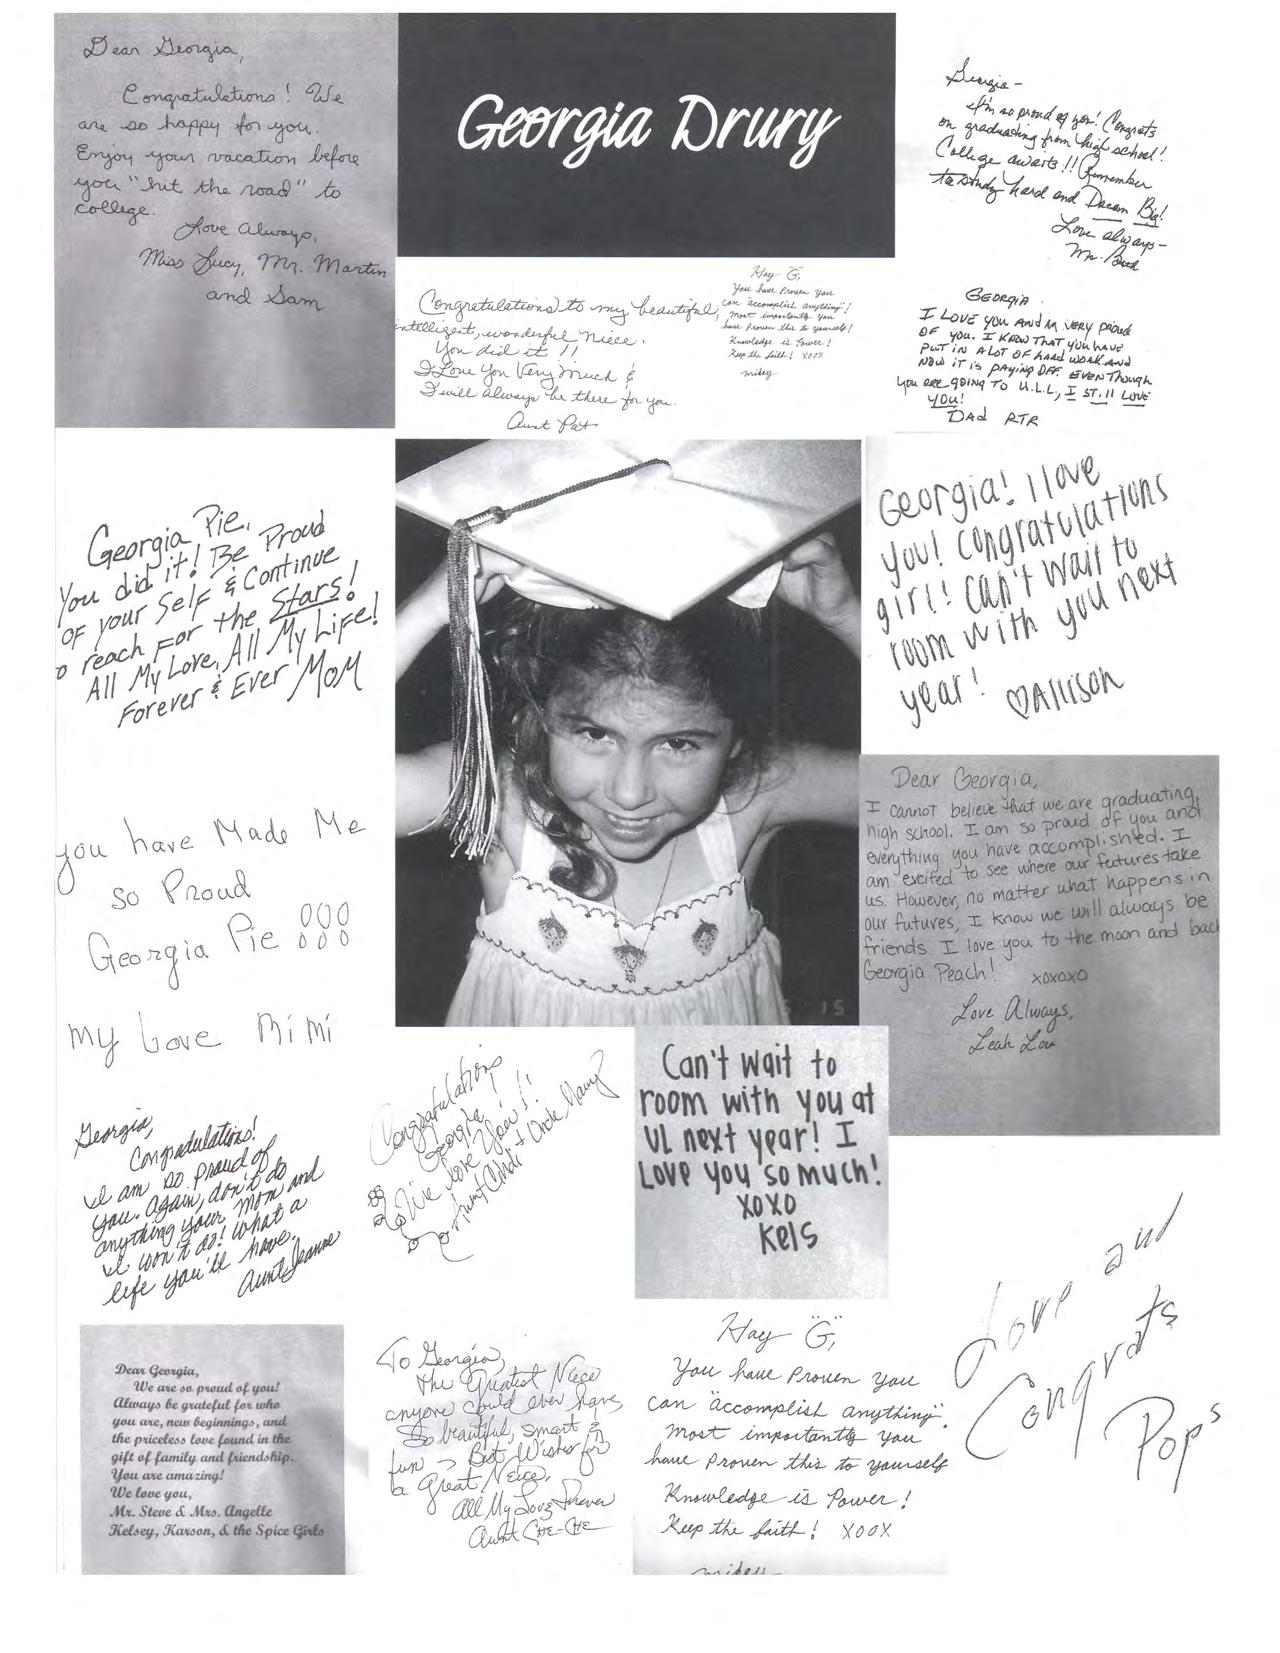 Dear Georgia,
Congratulations! We
are so happy for you.
Enjoy your vacation before
you "hit the road" to
college.
Love Always,
Miss Lucy, Mr. Martin
and Sam
Georgia Drury
Georgia-
I'm so proud of you! Congrats
on graduating from high school!
College awaits!! Remember
to study hard and Dream Big!
Love always-
Congratulations to my beautiful,
intelligent, wonderful niece.
You did it !!
I Love You Very Much &
I will always be there for you.
Aunt Pat
Hay "G",
You have Proven You
can "accomplish anything"!
Most importantly you
have Proven this to yourself!
Knowledge is Power!
Keep the faith! XOOX
mikey
GEORGIA.
I LOVE YOU AND IM VERY PROUD
OF YOU. I KNOW THAT YOU HAVE
PUT IN A LOT OF HARD WORK AND
NOW IT IS PAYING OFF. EVEN THOUGH
YOU ARE GOING TO U.L.L, I ST.11 LOVE
YOU!
DAD RTR
Georgia Pie,
You did it! Be Proud
of your Self & Continue
to reach For the Stars!
All My Love, All My Life!
Forever & Ever MOM
Georgia! I love
you! Congratulations
girl! Can't wait to
room with you next
year!
♡Allison
you have Made Me
so Proud
Georgia Pie !!!
My Love Mimi
Dear Georgia,
I cannot believe that we are graduating
high school. I am so proud of you and
everything you have accomplished. I
am excited to see where our futures take
us. However, no matter what happens in
our futures, I know we will always be
friends. I love you to the moon and back
Georgia Peach! xoxoxo
Love Always,
Leah Lou
15
Georgia,
Congradulations!
I am so proud of
you. Again, don't do
anything your mom and
I won't do! What a
life you'll have.
Aunt Jeanne
Congratulations
Georgia!
We love You!!
Aunt Candi & Uncle Manny
Can't wait to
room with you at
UL next year! I
Love you so much!
xoxo
Kels
Love and
Congrats
Pops
Dear Georgia,
We are so proud of you!
Always be grateful for who
you are, new beginnings, and
the priceless love found in the
gift of family and friendship.
You are amazing!
We love you,
Mr. Steve & Mrs. Angelle
Kelsey, Karson, & the Spice Girls
To Georgia,
The Greatest Niece
anyone could ever have,
So beautiful, smart &
fun -> Best Wishes for
a Great Neice,
All My Love Forever
Aunt CHE-CHE
Hay "G",
You have Proven You
can "accomplish anything".
Most importantly you
have Proven this to yourself
Knowledge is Power!
Keep the faith! XOOX
mikey